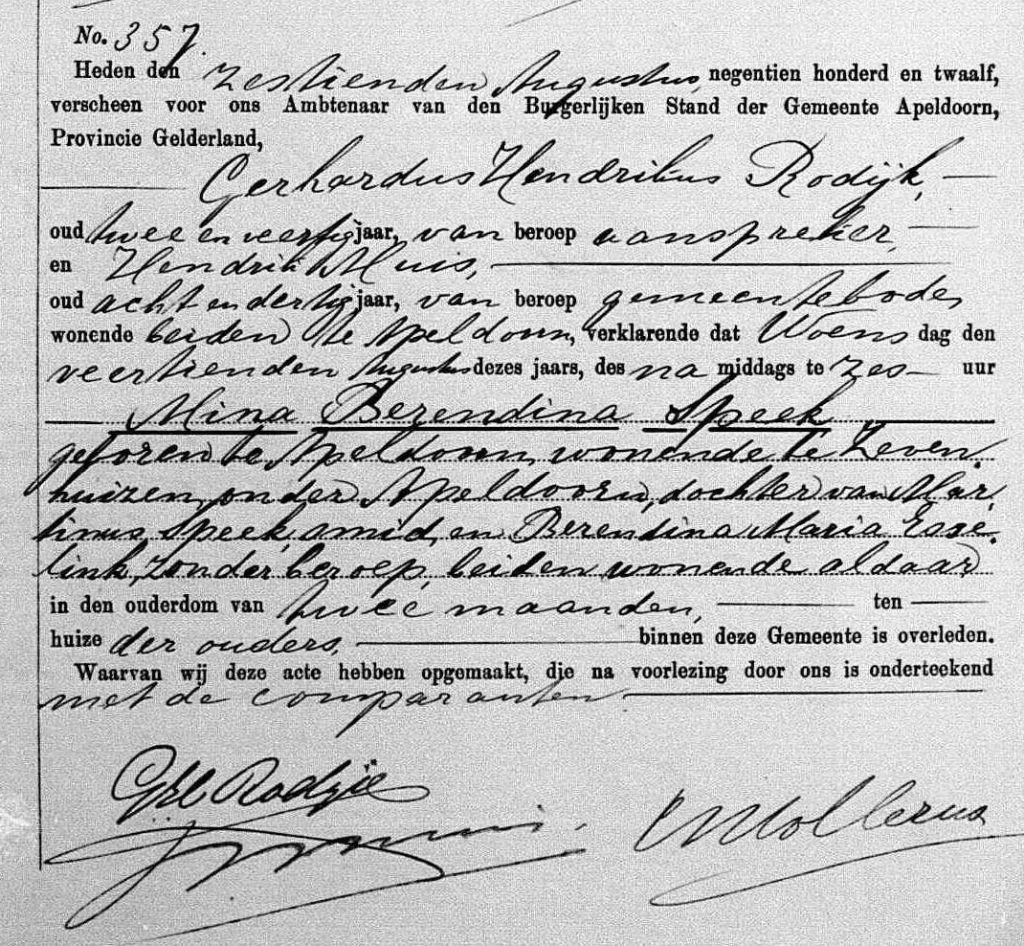 No. 357.
Heden den zestienden Augustus, negentien honderd en twaalf,
verscheen voor ons Ambtenaar van den Burgerlijken Stand der Gemeente Apeldoorn,
Provincie Gelderland,
Gerhardus Hendrikus Rodijk,
oud twee en veertig jaar, van beroep aanspreker,
en Hendrik Huis,
oud acht en dertig jaar, van beroep gemeentebode,
wonende beiden te Apeldoorn, verklarende dat Woens dag den
veertienden Augustus dezes jaars, des na middags te zes uur
Mina Berendina Speek
geboren te Apeldoorn, wonende te Zeven-
huizen, onder Apeldoorn, dochter van Mar-
tinus Speek, smid, en Berendina Maria Esse-
link, zonder beroep, beiden wonende aldaar
in den ouderdom van twee maanden, ten
huize der ouders, binnen deze Gemeente is overleden.
Waarvan wij deze acte hebben opgemaakt, die na voorlezing door ons is onderteekend
met de comparanten
GH Rodijk